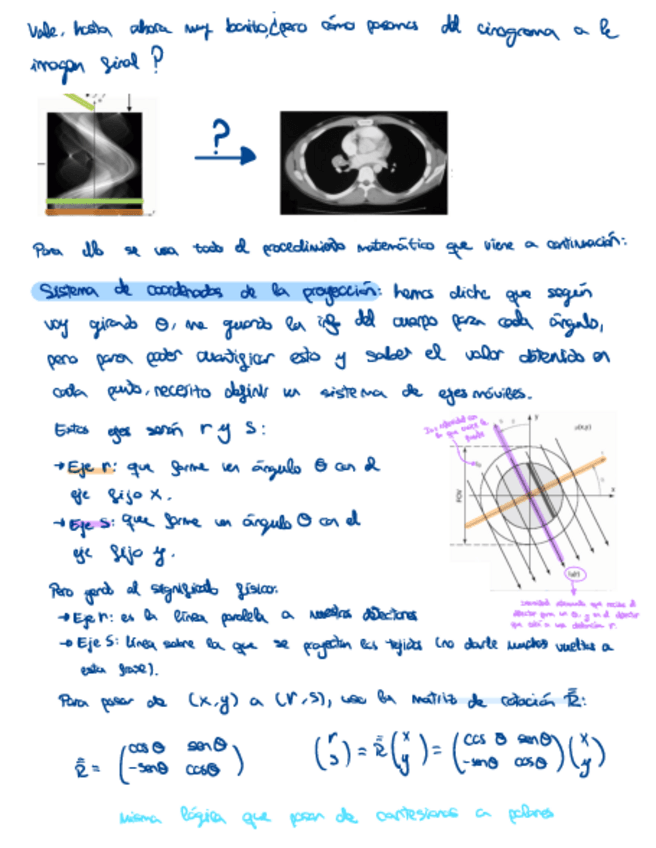 Vale, hasta ahora muy bonito, ¿pero cómo pasamos del sinograma a la
imagen final?
?
Para ello se usa todo el procedimiento matemático que viene a continuación:
Sistema de coordenadas de la proyección: hemos dicho que según
voy girando θ, me guardo la info del cuerpo para cada ángulo,
pero para poder cuantificar esto y saber el valor obtenido en
cada punto, necesito definir un sistema de ejes móviles.
Estos ejes serán r y s:
→ Eje r: que forme un ángulo θ con el
eje fijo x.
→ Eje s: que forme un ángulo θ con el
eje fijo y.
I₀: intensidad con
la que
y
x
FOV
Intensidad que recibe el
detector para un θ, y en el detector
que está a una distancia r.
Pero yendo al significado físico:
→ Eje r: es la línea paralela a nuestros detectores
→ Eje s: línea sobre la que se proyectan los tejidos (no darle muchas vueltas a
esta frase).
Para pasar de (x,y) a (r,s), uso la matriz de rotación R̿:
R̿ = (cos θ senθ
-senθ cosθ)
(r
s) = R̿ (x
y) = (cos θ senθ
-senθ cosθ) (x
y)
misma lógica que pasar de cartesianas a polares